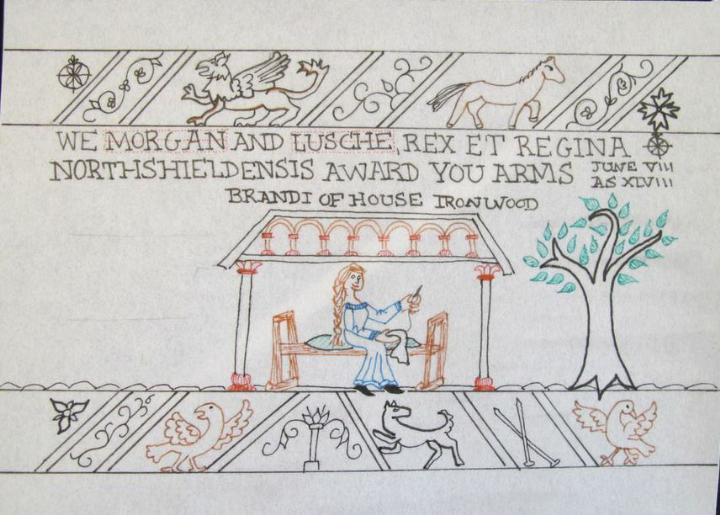 WE MORGAN AND LUSCHE, REX ET REGINA
NORTHSHIELDENSIS AWARD YOU ARMS
JUNE VIII
AS XLVIII
BRANDI OF HOUSE IRONWOOD